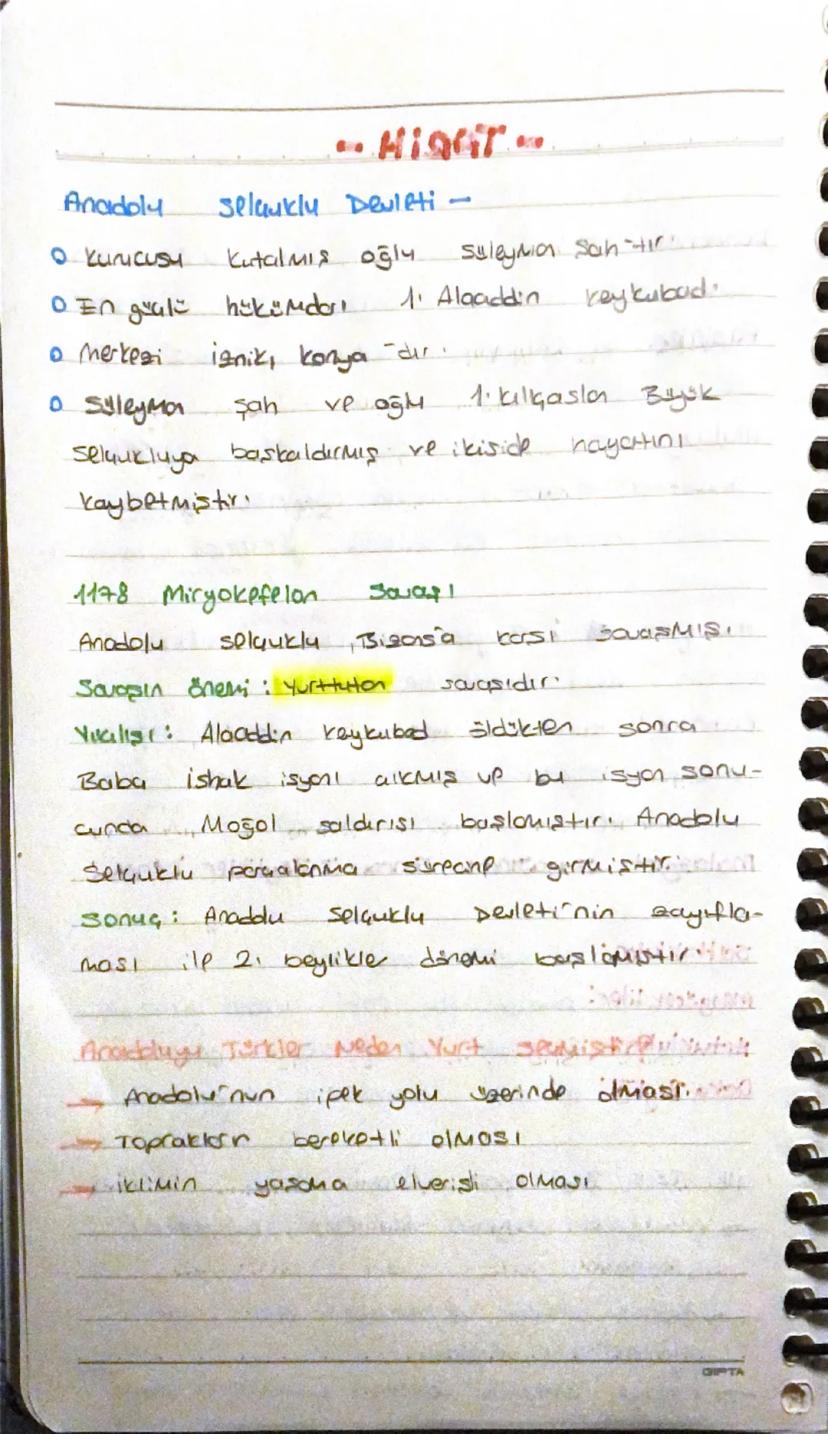 -- HİAGT --
Anadolu Selçuklu Devleti -
Kurucusu Kutalmış oğlu Süleyman Şah-tır.
En güçlü hükümdarı 1. Alaaddin Keykubad.
Merkezi iznik, konya -dır.
Süleyman şah ve oğlu 1. kılıçaslan Büyük
Selçukluya baskaldırmış ve ikiside hayatını
kaybetmiştir.
1178 Miryokefelon Savaşı
Anadolu selçuklu, Bizans'a karsı savaşmış.
Savaşın önemi: Yurttutan savaşıdır.
Yıkılışı: Alaaddin keykubad öldükten sonra
Baba ishak isyanı çıkmış ve bu isyan sonu-
cunda Moğol saldırısı başlamıştır. Anadolu
Selçuklu parçalanma sürecine girmiştir.
Sonuç: Anadolu Selçuklu Devleti'nin zayıfla-
ması ile 2. beylikler dönemi başlamıştır.
Anadoluyu Türkler Neden Yurt seçmiştir?
→ Anadolu'nun ipek yolu üzerinde olması.
→ Toprakların bereketli olması
→ iklimin yaşama elverişli olması
GIPTA